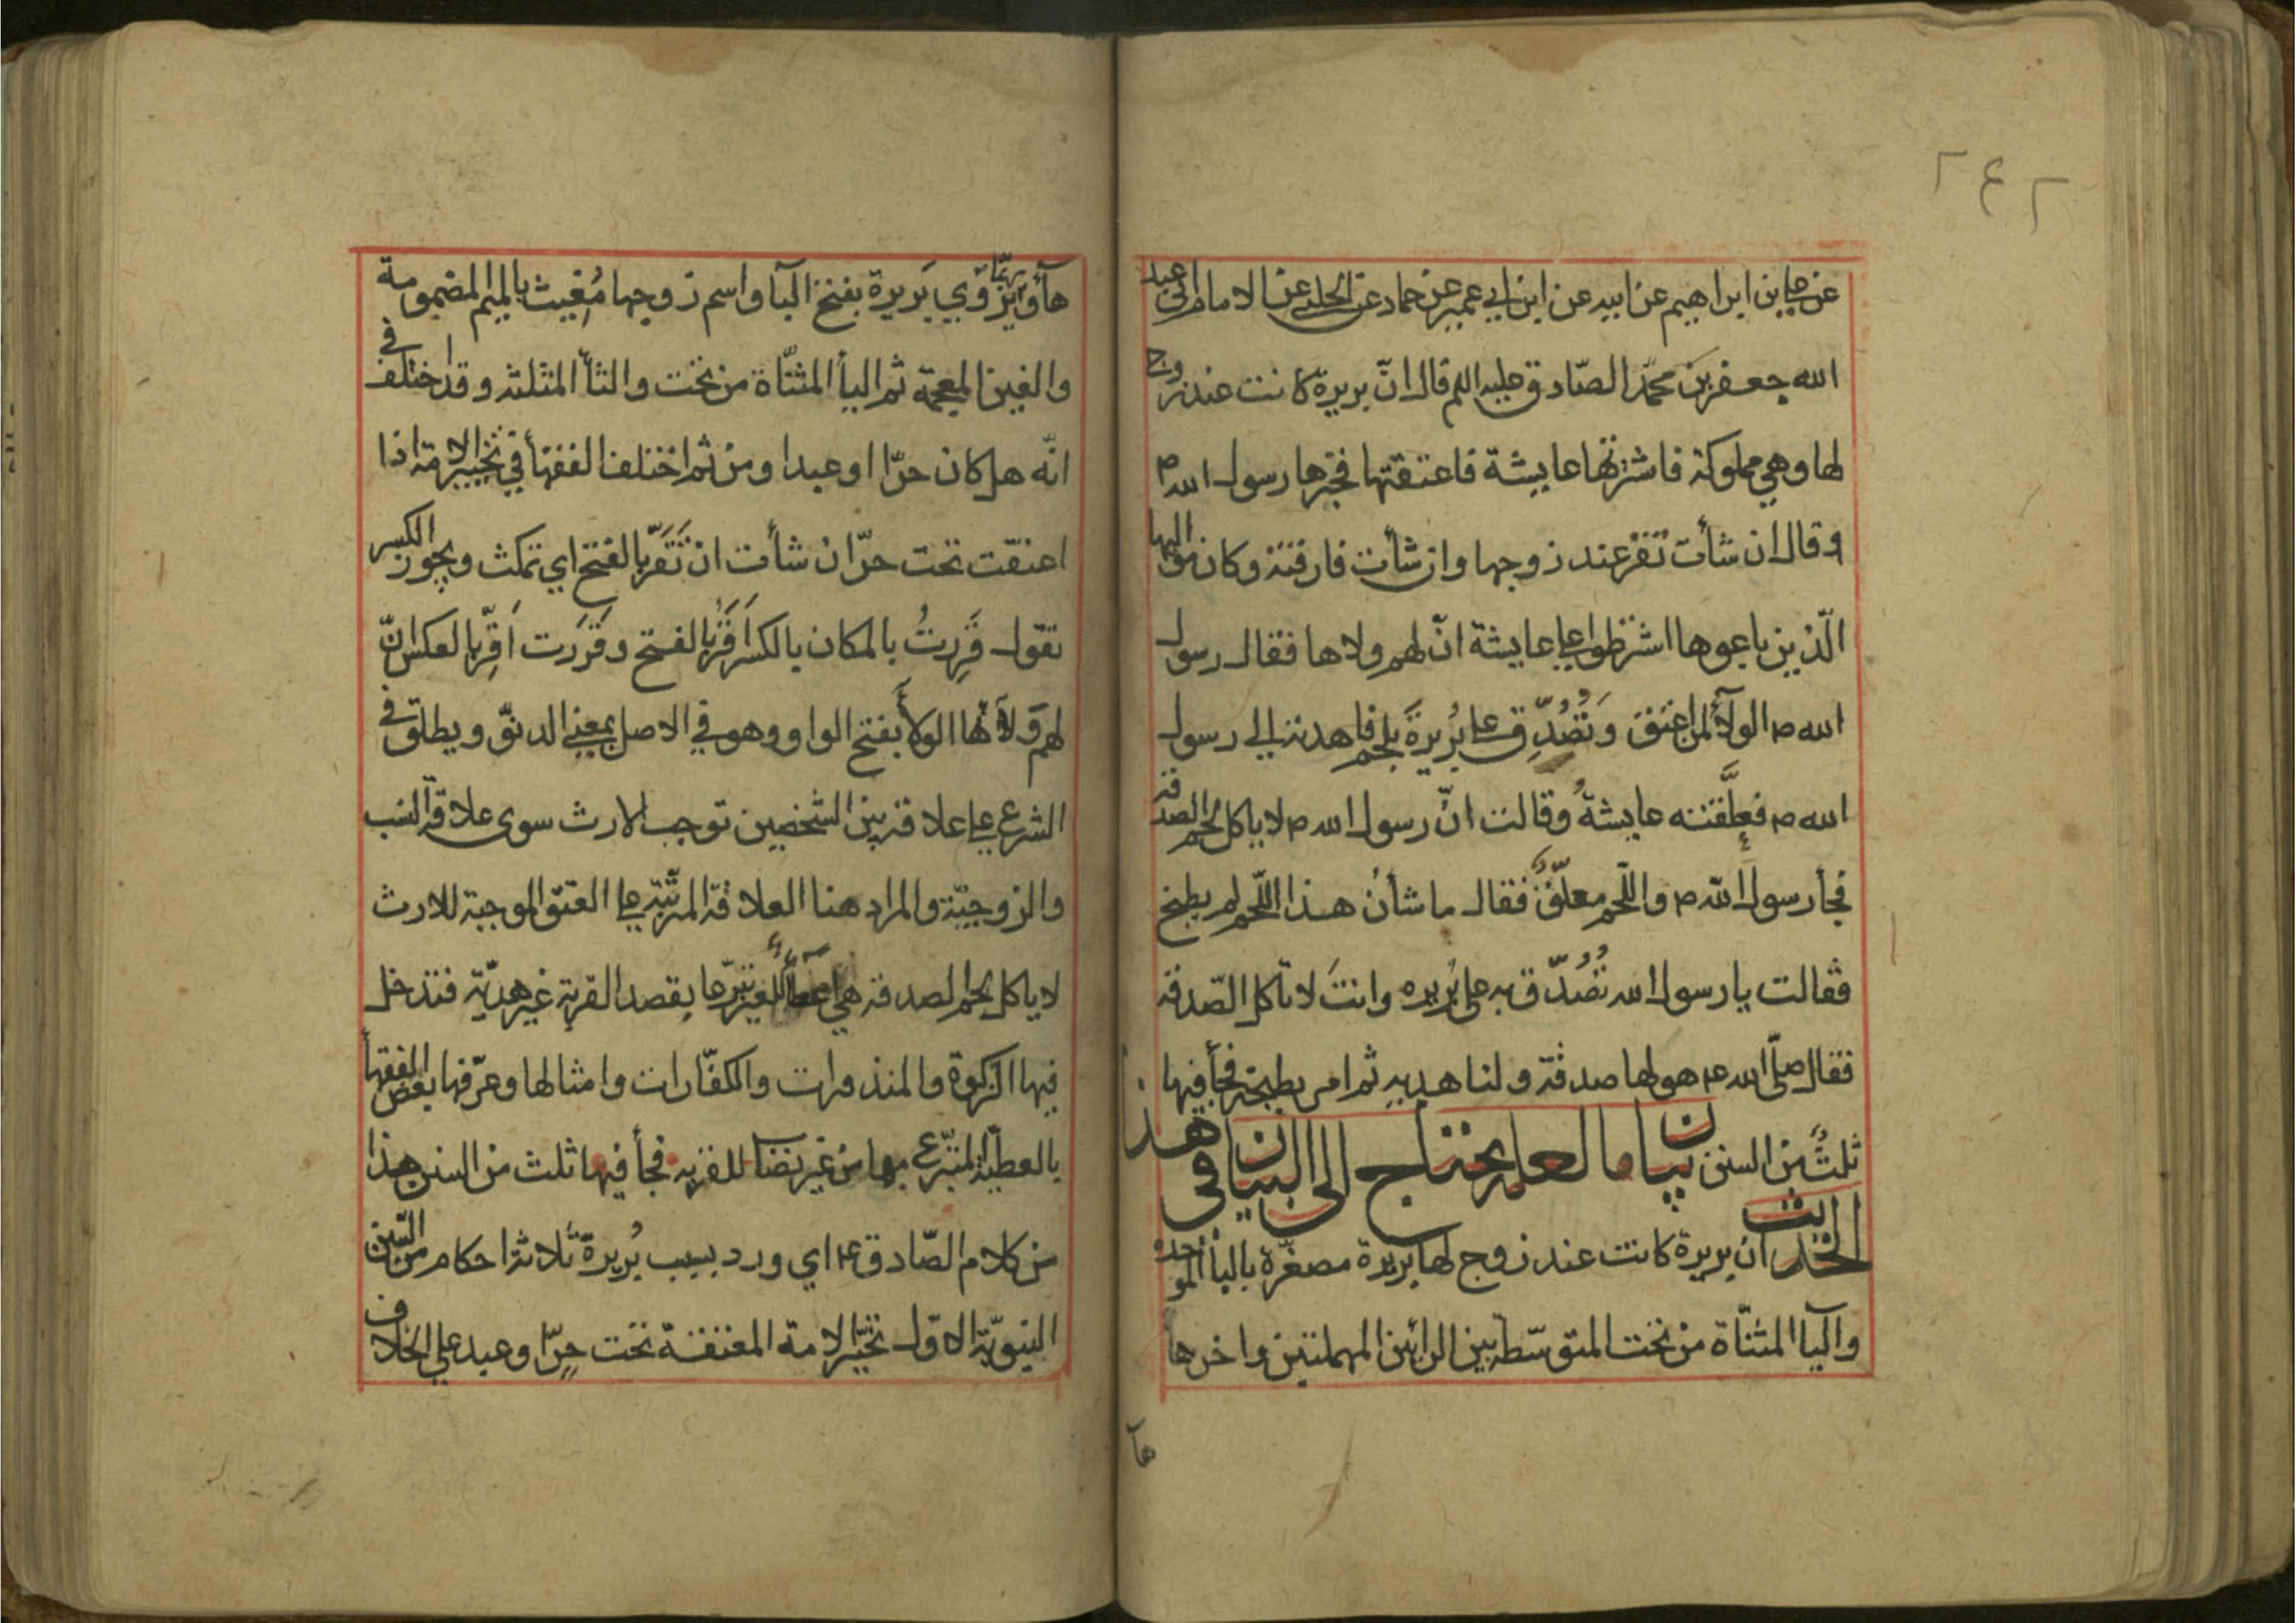 ٢٤٢
عن علي بن ابراهيم عن ابيه عن ابن ابي عمير عن حماد عن الحلبي عن الامام ابي عبد
الله جعفر بن محمد الصّادق عليه السلم قال انّ بريرة كانت عند زوج
لها وهي مملوكة فاشترتها عايشة فاعتقتها فخيّرها رسول الله ص
وقال ان شأت تقرّ عند زوجها وان شأت فارقته وكان مواليها
الّذين باعوها اشترطوا علي عايشة انّ لهم ولاها فقال رسول
الله ص الولآء لمن اعتق وَتُصُدِّق علي بُريرةَ بلحم فاهدته الي رسول
الله ص فعلّقته عايشةُ وقالت انّ رسول الله ص لا ياكل لحم الصدقة
فجأ رسول الله ص واللّحم معلّقٌ فقال ما شأن هذا اللّحم لم يطبخ
فقالت يا رسول الله تُصُدّق به علي بُريره وانتَ لا تاكل الصّدقة
فقال صلّي الله ع هو لها صدقة ولنا هديه ثم امر بطبخه فجأ فيها
ثلثٌ من السنن بيان ما لعله يحتاج الى البيان في هذا
الحديث ان بريرة كانت عند زوج لها بريرة مصغّرة بالبأ الموحدة
واليآ المثنّاة من تحت المتوسّطه بين الرائين المهملتين واخرها
هآ
هآ وربّما يروي بَريرة بفتح البآ واسم زوجها مُغِيث بالميم المضمومة
والغين المعجمة ثم اليأ المثنّاة من تحت والثأ المثلثه وقد اختلف في
انّه هل كان حرّا او عبدا ومن ثم اختلف الفقهأ في تخيير الامة اذا
اعتقت تحت حرّ ان شأت ان تَقَرّ بالفتح اي تمكث ويجوز الكسر
تقول قَرِرتُ بالمكان بالكسر اَقَرُّ بالفتح وقَرَرت اَقِرّ بالعكس انّ
لهم وَلآئها الولأ بفتح الواو وهو في الاصل بمعني الدنوّ ويطلق في
الشرع علي علاقة بين الشخصين توجب الارث سوى علاقة النسب
والزوجيّة والمراد هنا العلاقة المترتّبة علي العتق الموجبة للارث
لا ياكل لحم الصدقه هي للغير تبرّعا بقصد القربة غير هديّة فتدخل
فيها الزكوة والمنذورات والكفّارات وامثالها وعرّفها بعض الفقهأ
بالعطيّة المتبرّع بها من غير نصاب للقربه فجأ فيها ثلث من السنن هذا
من كلام الصّادق ع اي ورد بسبب بُريرة ثلاثة احكام من السّنن
النبويّة الاوّل تخيّر الامة المعتقة تحت حرّ او عبد علي الخلاف